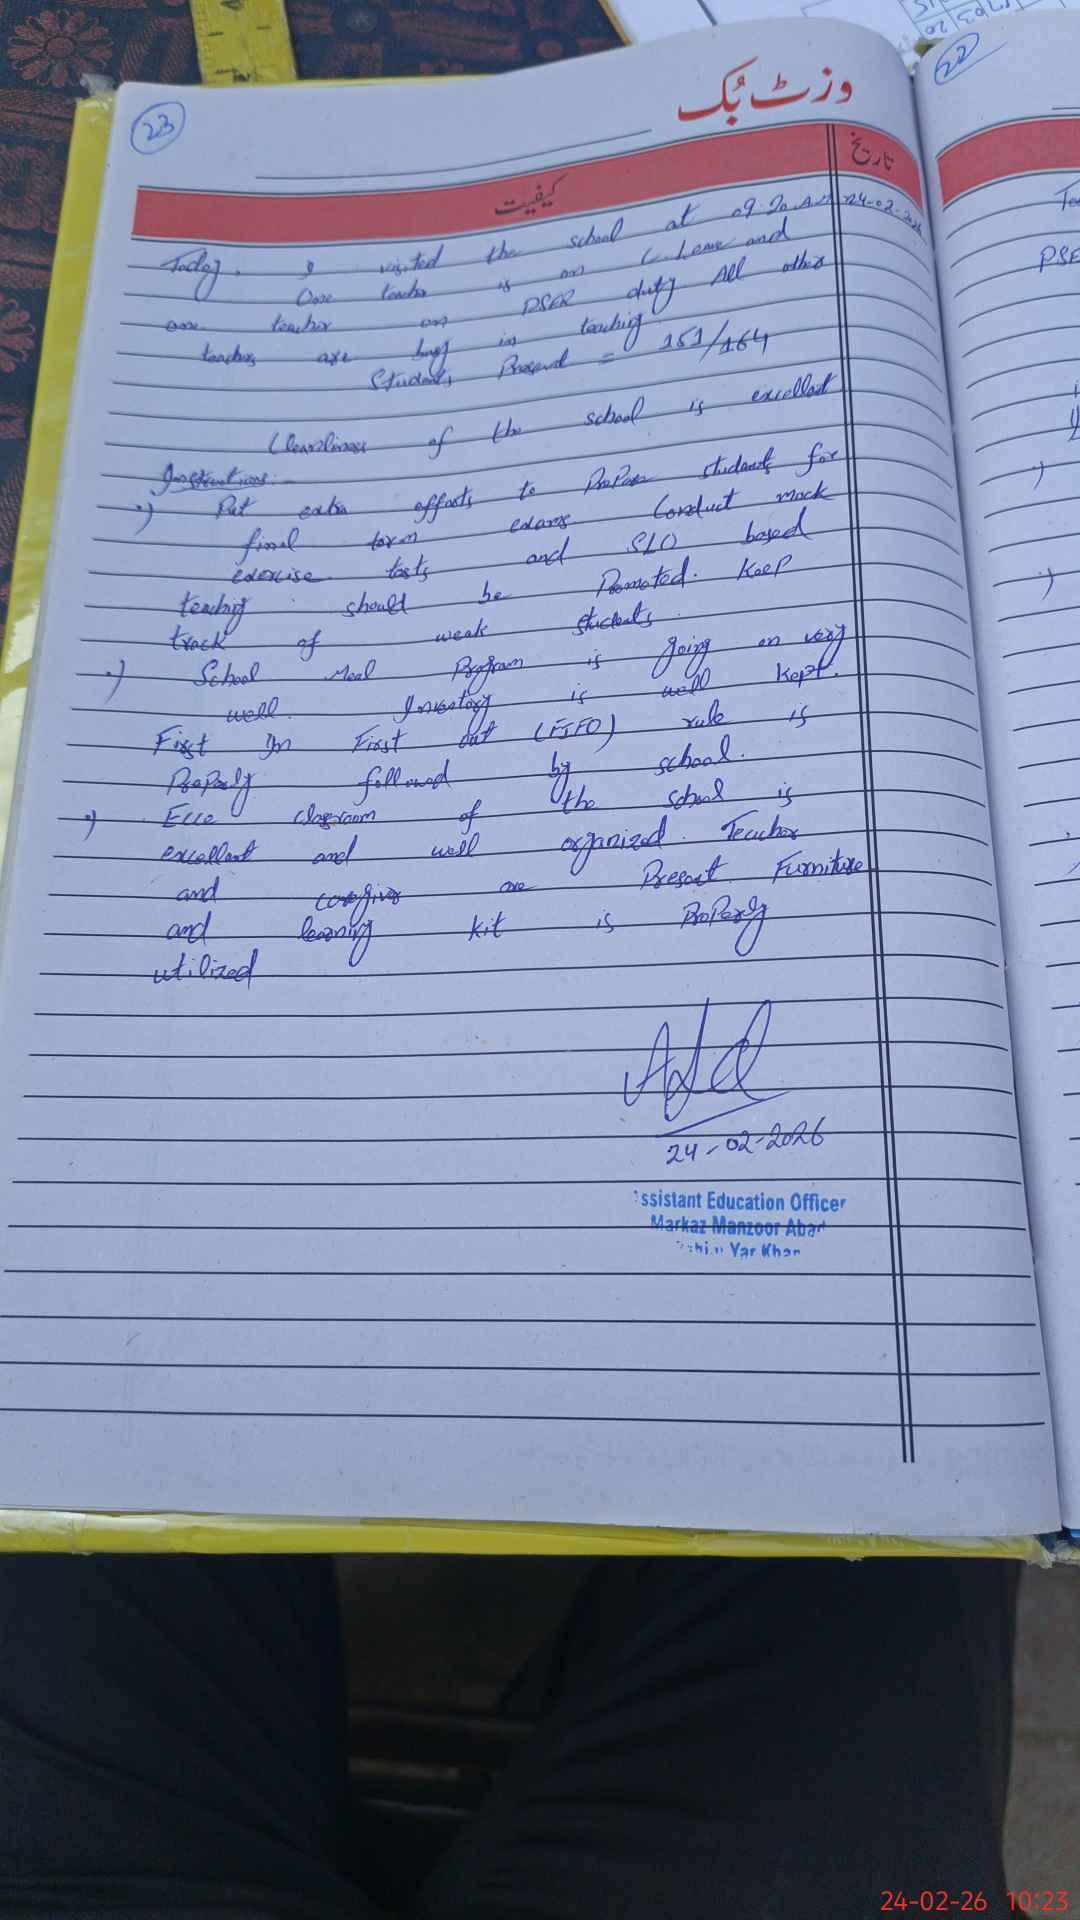 23
وزٹ بُک
کیفیت
تاریخ
Today. I visited the school at 09:20 AM 24-02-2026
One teacher is on C. Leave and
one teacher on PSER duty All other
teachers are busy in teaching
Students Present = 151/164
Cleanliness of the school is excellent
Instructions:-
Put extra efforts to Prepare students for
final term exams. Conduct mock
exercise tests and SLO based
teaching should be Promoted. Keep
track of weak students.
School Meal Program is going on very
well. Inventory is well kept.
First In First Out (FIFO) rule is
Properly followed by school.
Ecce classroom of the school is
excellent and well organized. Teacher
and caregiver are Present Furniture
and learning kit is Properly
utilized
24-02-2026
ssistant Education Officer
Markaz Manzoor Abad
Yar Khan
22
PSE
24-02-26 10:23